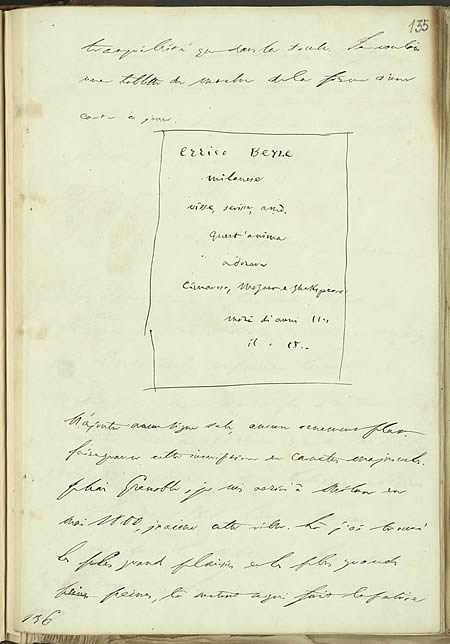 135
tranquillité que dans la foule. Je voulais
une tablette de marbre de la forme d'une
carte à jouer.
Errico Beyle
milanese
visse, scrisse, amò.
Quest'anima
adorava
Cimarosa, Mozart e Shakespeare
morì di anni
il .. 18..
N'ajouter aucun signe sale, aucun ornement plat,
faire graver cette inscription en caractères majuscules.
Je hais Grenoble, je suis arrivé à Milan en
mai 1800, j'aime cette ville. Là j'ai trouvé
les plus grands plaisirs et les plus grandes
peines, là surtout ce qui fait la patrie
136